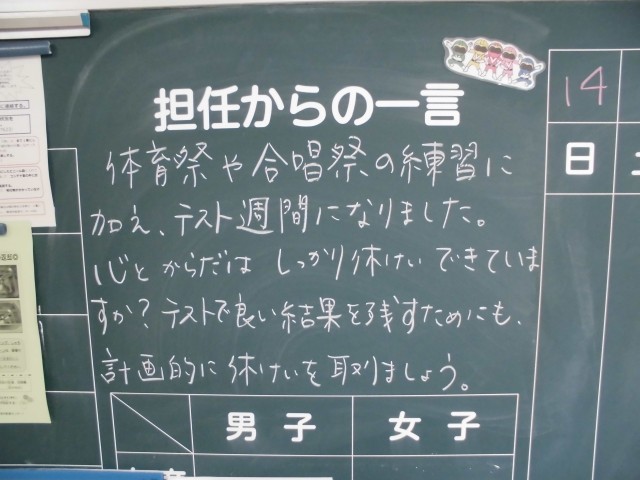 担任からの一言
体育祭や合唱祭の練習に
加え、テスト週間になりました。
心とからだは しっかり休けいできていま
すか？テストで良い結果を残すためにも、
計画的に休けいを取りましょう。
14
日
男子
女子